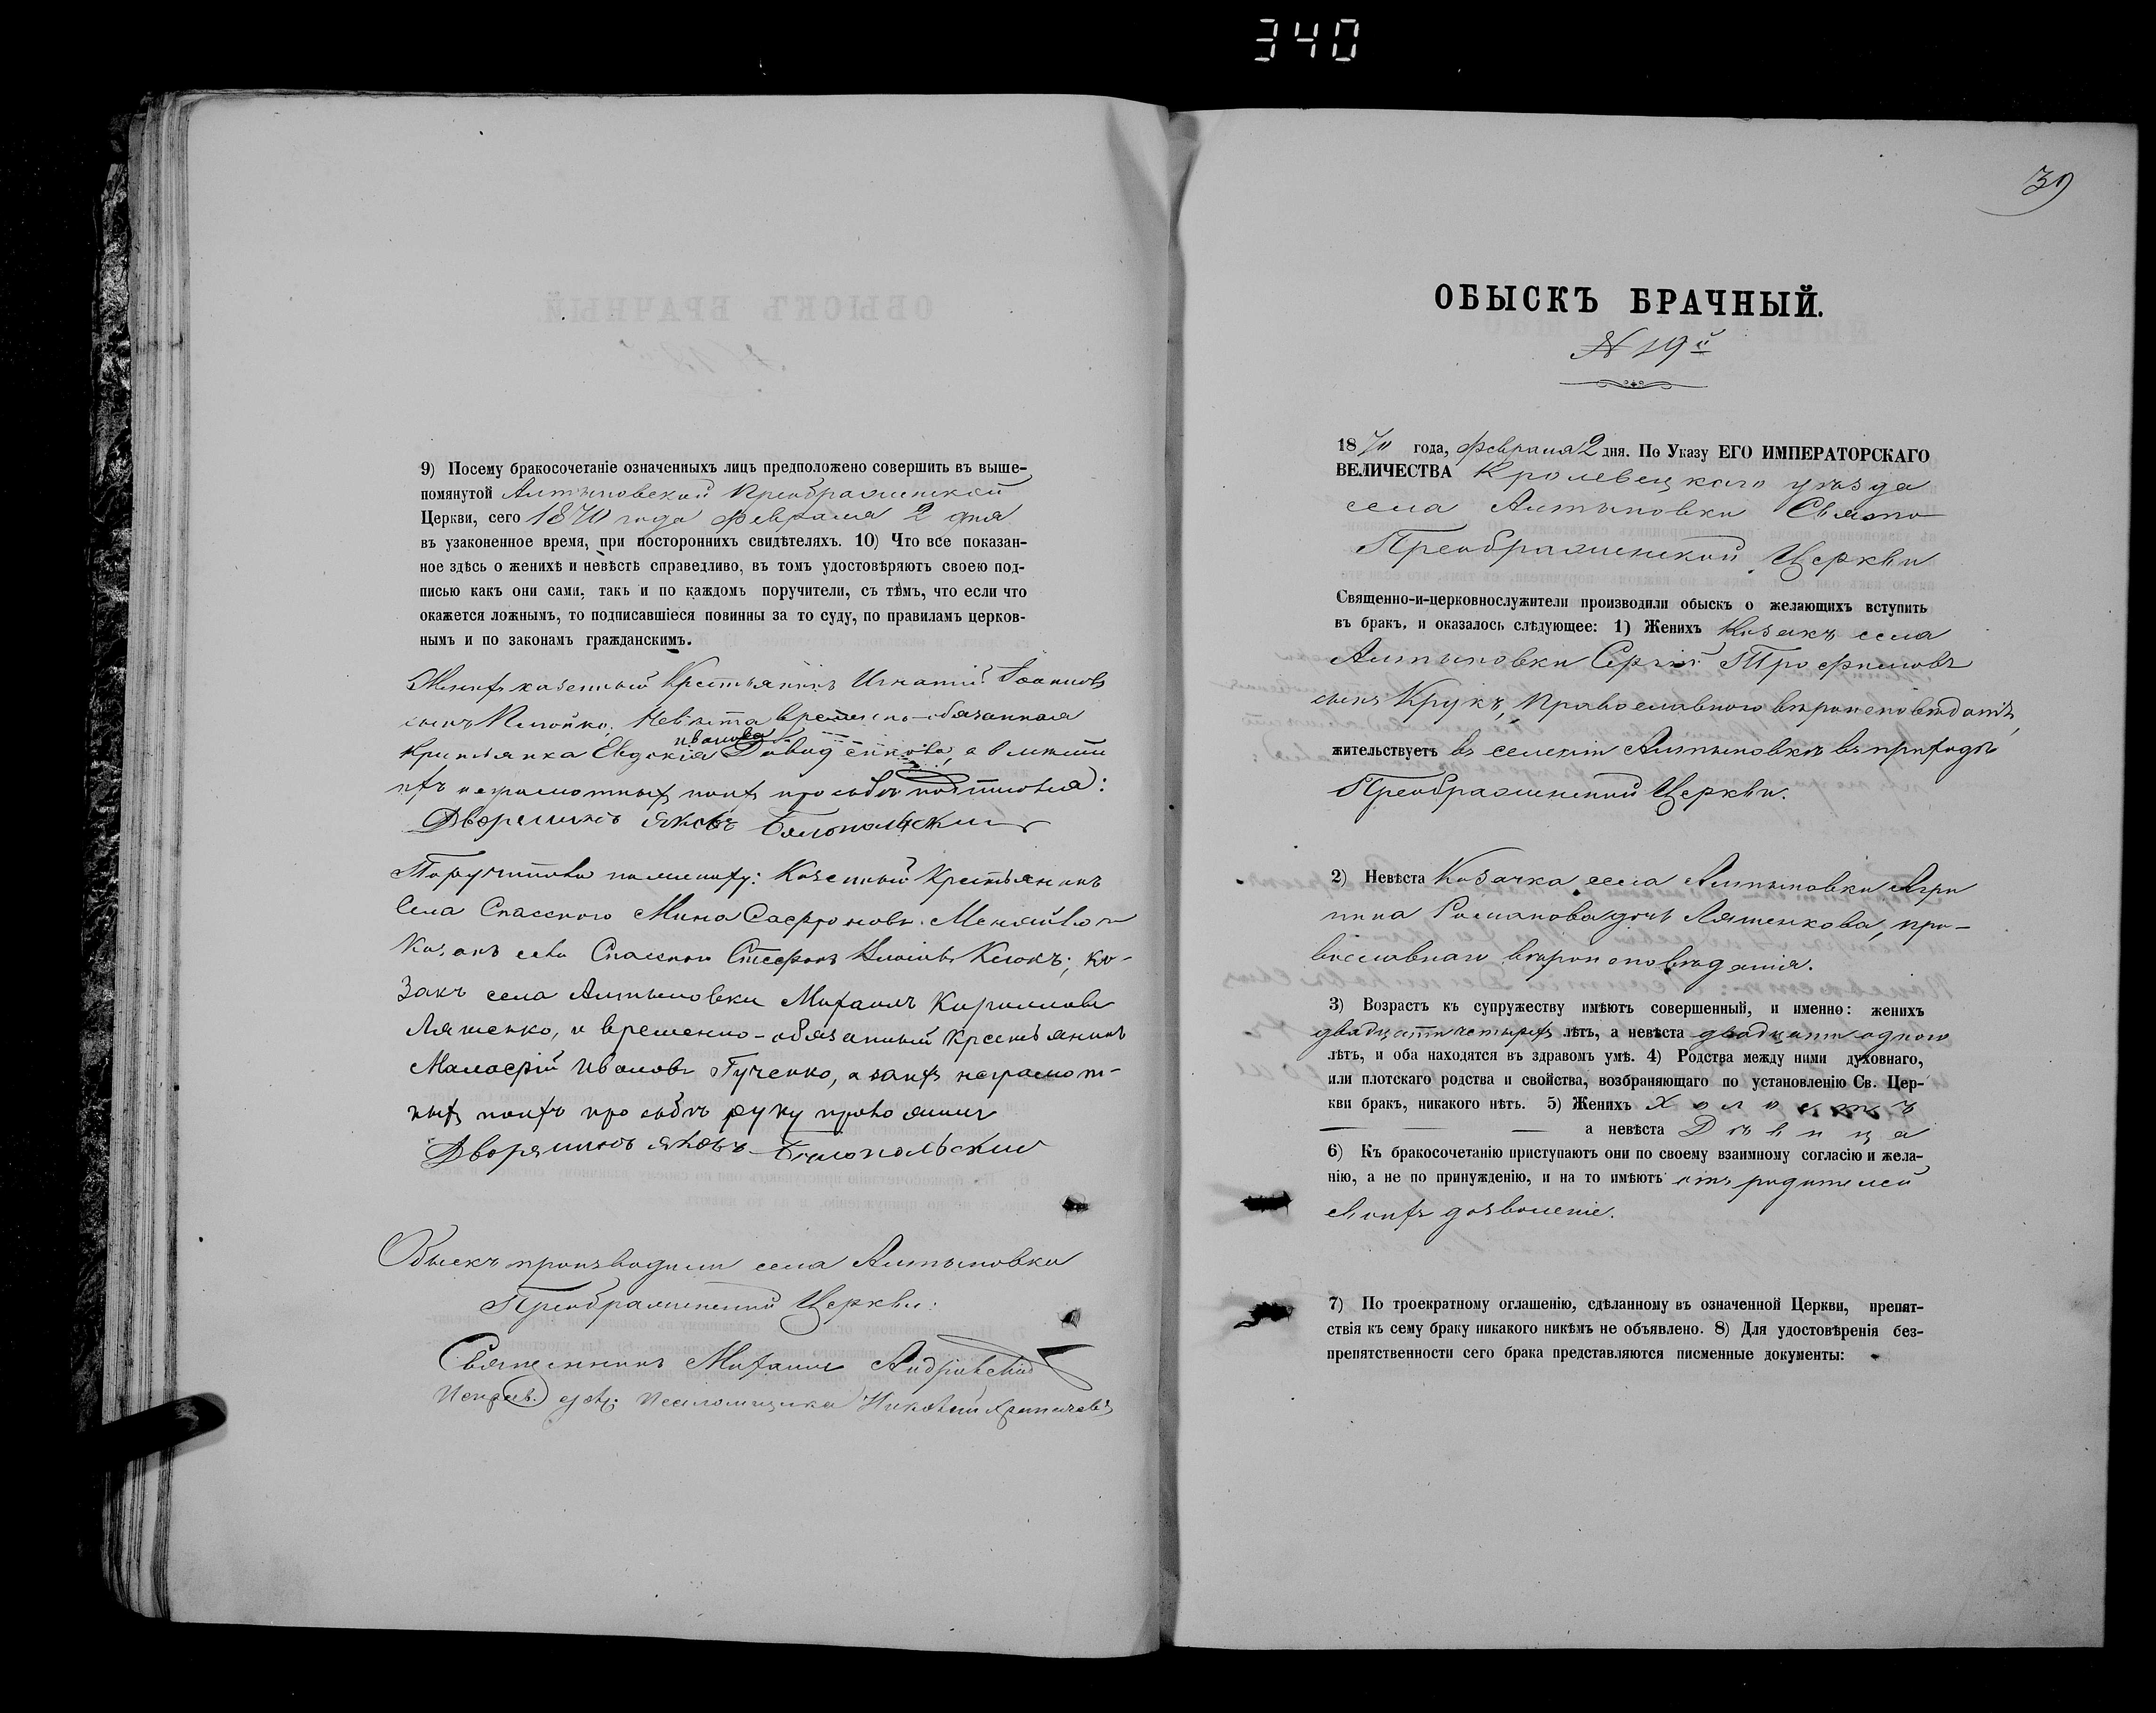 340
9) Посему бракосочетаніе означенныхъ лицъ предположено совершить въ выше-
помянутой Алтыновской Преображенской
Церкви, сего 1870 года февраля 2 дня
въ узаконенное время, при постороннихъ свидѣтеляхъ. 10) Что все показан-
ное здѣсь о женихѣ и невѣстѣ справедливо, въ томъ удостовѣряютъ своею под-
писью какъ они сами, такъ и по каждомъ поручители, съ тѣмъ, что если что
окажется ложнымъ, то подписавшіеся повинны за то суду, по правиламъ церков-
нымъ и по законамъ гражданскимъ.
Женихъ казенный Крестьянинъ Игнатій Іоанновъ
сынъ Невѣста временно-обязанная
иванова
Крестьянка Евдокія а вмѣсто
ихъ неграмотныхъ поихъ прозьбѣ
Дворянинъ Яковъ Бѣлопольскій
Поручители по женихѣ: Казенный Крестьянинъ
Села Спасского Мина Сафроновъ
Козакъ села Спаского Стефанъ ко-
закъ села Алтыновки Михаилъ Кириловъ
Ляшенко, и временно-обязанный Крестьянинъ
Малафій Ивановъ Гученко, а заихъ неграмот-
ныхъ поихъ прозьбѣ руку приложилъ
Дворянинъ Яковъ Бѣлопольскій
Обыскъ производили села Алтыновки
Преображенской Церкви:
Священникъ Михаилъ Андріевскій
Псаломщика Николай
39
ОБЫСКЪ БРАЧНЫЙ.
№ 19й
1870 года, февраля 2 дня. По Указу ЕГО ИМПЕРАТОРСКАГО
ВЕЛИЧЕСТВА Кролевецкаго уѣзда
села Алтыновки Свято
Преображенской Церкви
Священно-и-церковнослужители производили обыскъ о желающихъ вступить
въ бракъ, и оказалось слѣдующее: 1) Женихъ Козакъ села
Алтыновки Сергій Трофимовъ
сынъ Крукъ, Православного вѣроисповѣданія,
жительствуетъ въ селеніи Алтыновкѣ въ приходѣ
Преображенской Церкви.
2) Невѣста Козачка села Алтыновки Агри
пина Романова дочь Ляшенкова, пра-
вославнаго вѣроисповѣданія.
3) Возрастъ къ супружеству имѣютъ совершенный, и именно: женихъ
двадцати четырехъ лѣтъ, а невѣста двадцати одного
лѣтъ, и оба находятся въ здравомъ умѣ. 4) Родства между ними духовнаго,
или плотскаго родства и свойства, возбраняющаго по установленію Св. Цер-
кви бракъ, никакого нѣтъ. 5) Женихъ Холостъ
а невѣста Дѣвица
6) Къ бракосочетанію приступаютъ они по своему взаимному согласію и жела-
нію, а не по принужденію, и на то имѣютъ отъ родителей
своихъ дозволеніе.
7) По троекратному оглашенію, сдѣланному въ означенной Церкви, препят-
ствія къ сему браку никакого никѣмъ не объявлено. 8) Для удостовѣренія без-
препятственности сего брака представляются писменные документы: